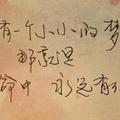 有一个小小的梦
那就是
命中 永远有